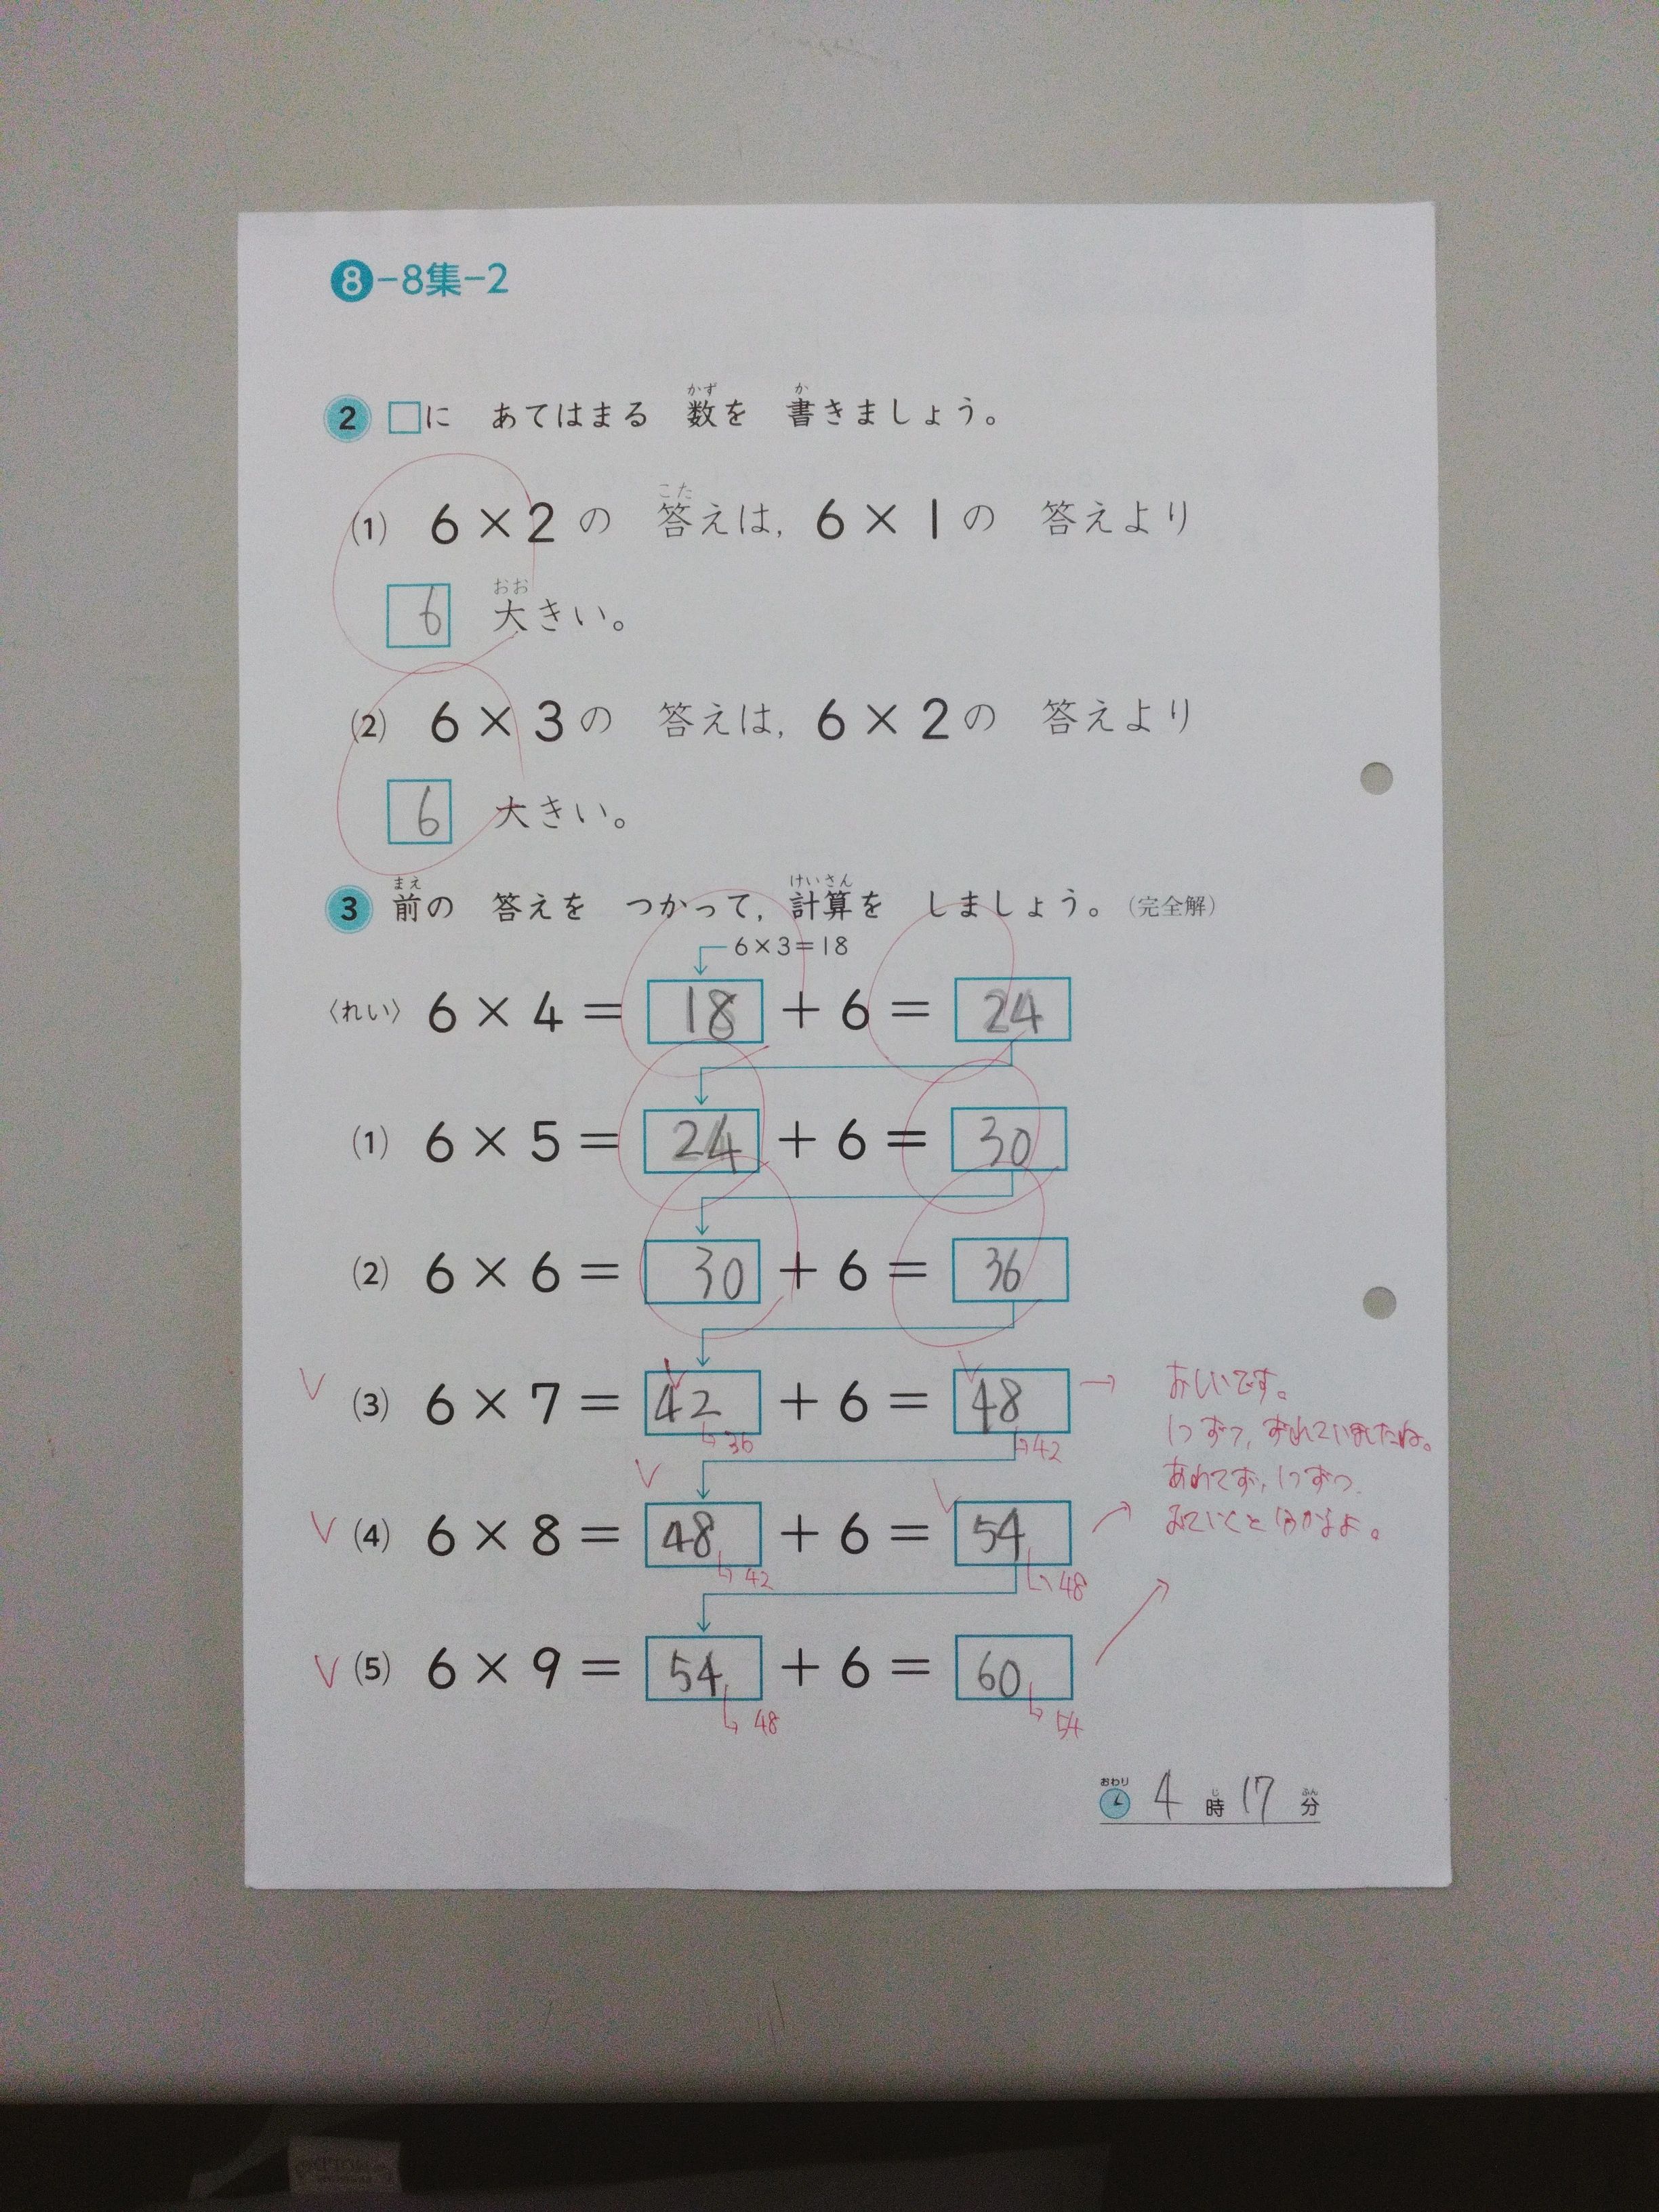 8-8集-2
2 □に あてはまる 数を 書きましょう。
かず か
(1) 6×2の 答えは, 6×1の 答えより
こた
6 大きい。
おお
(2) 6×3の 答えは, 6×2の 答えより
6 大きい。
3 前の 答えを つかって, 計算を しましょう。(完全解)
まえ けいさん
6×3=18
〈れい〉 6×4= 18 +6= 24
(1) 6×5= 24 +6= 30
(2) 6×6= 30 +6= 36
(3) 6×7= 42 +6= 48
36 42
おしいです。
1つずつ, ずれていましたね。
あわてず, 1つずつ
みていくと わかるよ。
(4) 6×8= 48 +6= 54
42 48
(5) 6×9= 54 +6= 60
48 54
おわり 4時17分
じ ふん